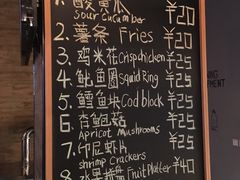 1. 酸黄瓜 ¥20
Sour Cucumber
2. 薯条 Fries ¥20
3. 鸡米花 Crispchicken ¥25
4. 鱿鱼圈 Squid Ring ¥25
5. 鳕鱼块 Cod block ¥25
6. 杏鲍菇 ¥25
Apricot Mushrooms
7. 印尼虾片 ¥25
shrimp Crackers
8. 水果拼盘 Fruit Platter ¥40